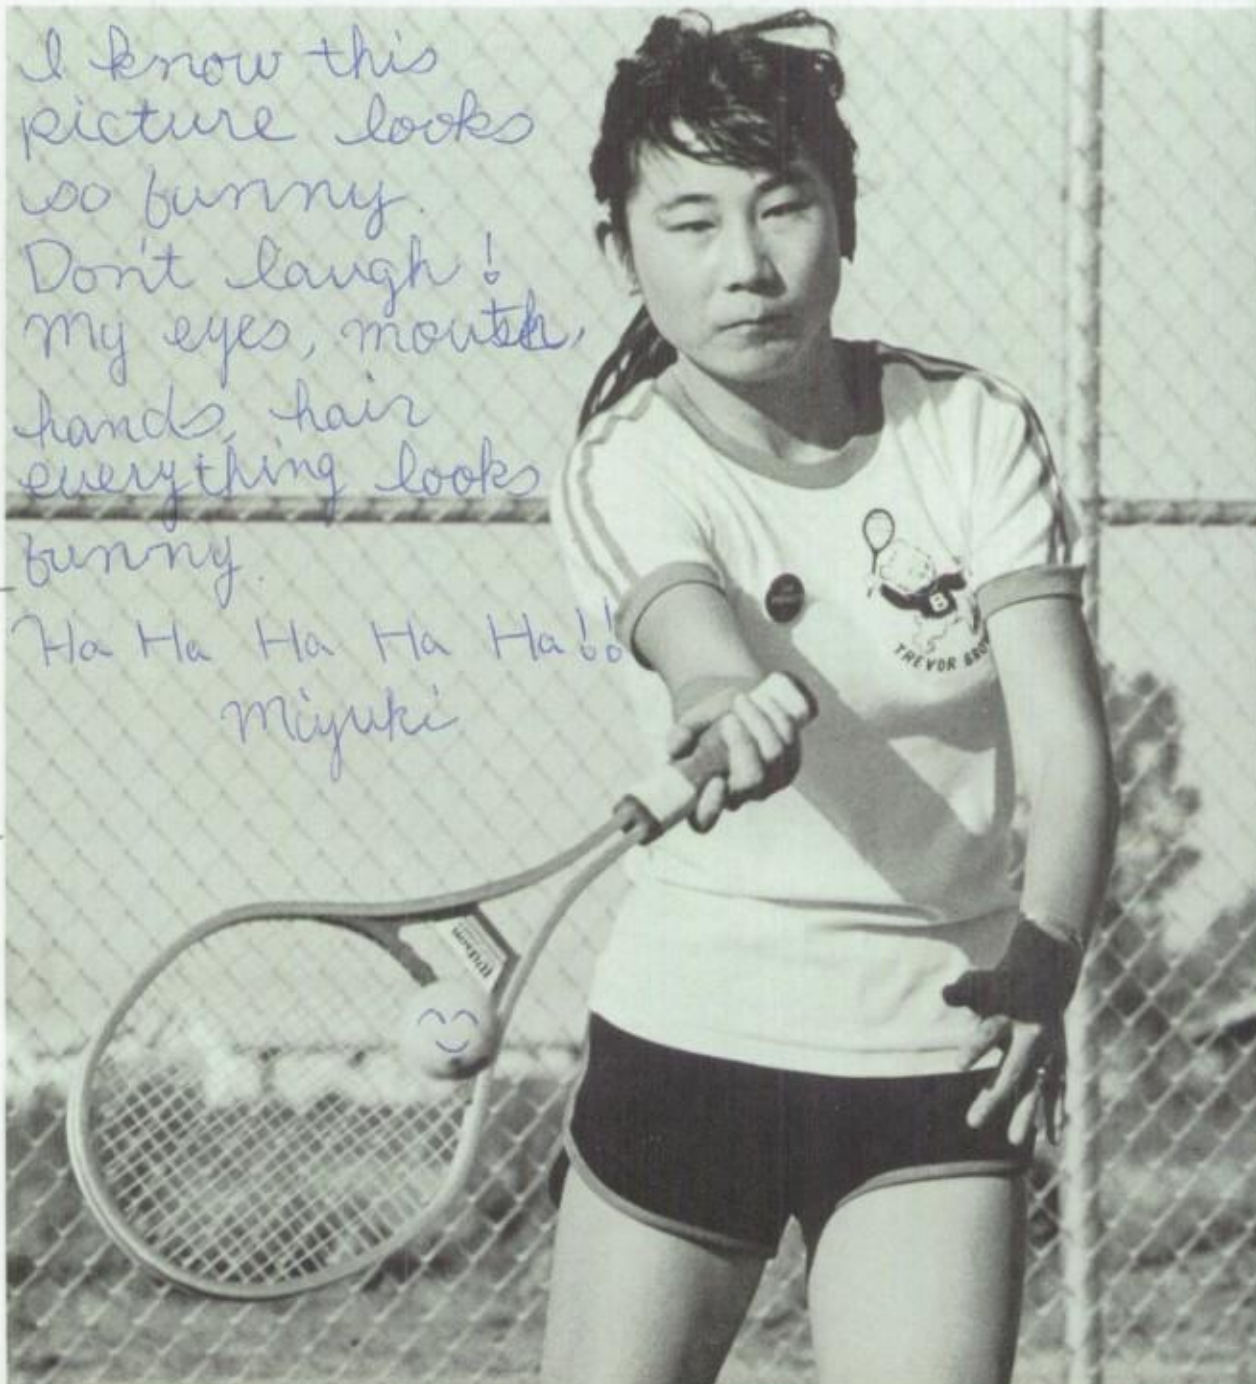 I know this
picture looks
so funny.
Don't laugh!
My eyes, mouth,
hands, hair
everything looks
funny.
Ha Ha Ha Ha Ha!!
Miyuki
B
TREVOR BRO
Wilson